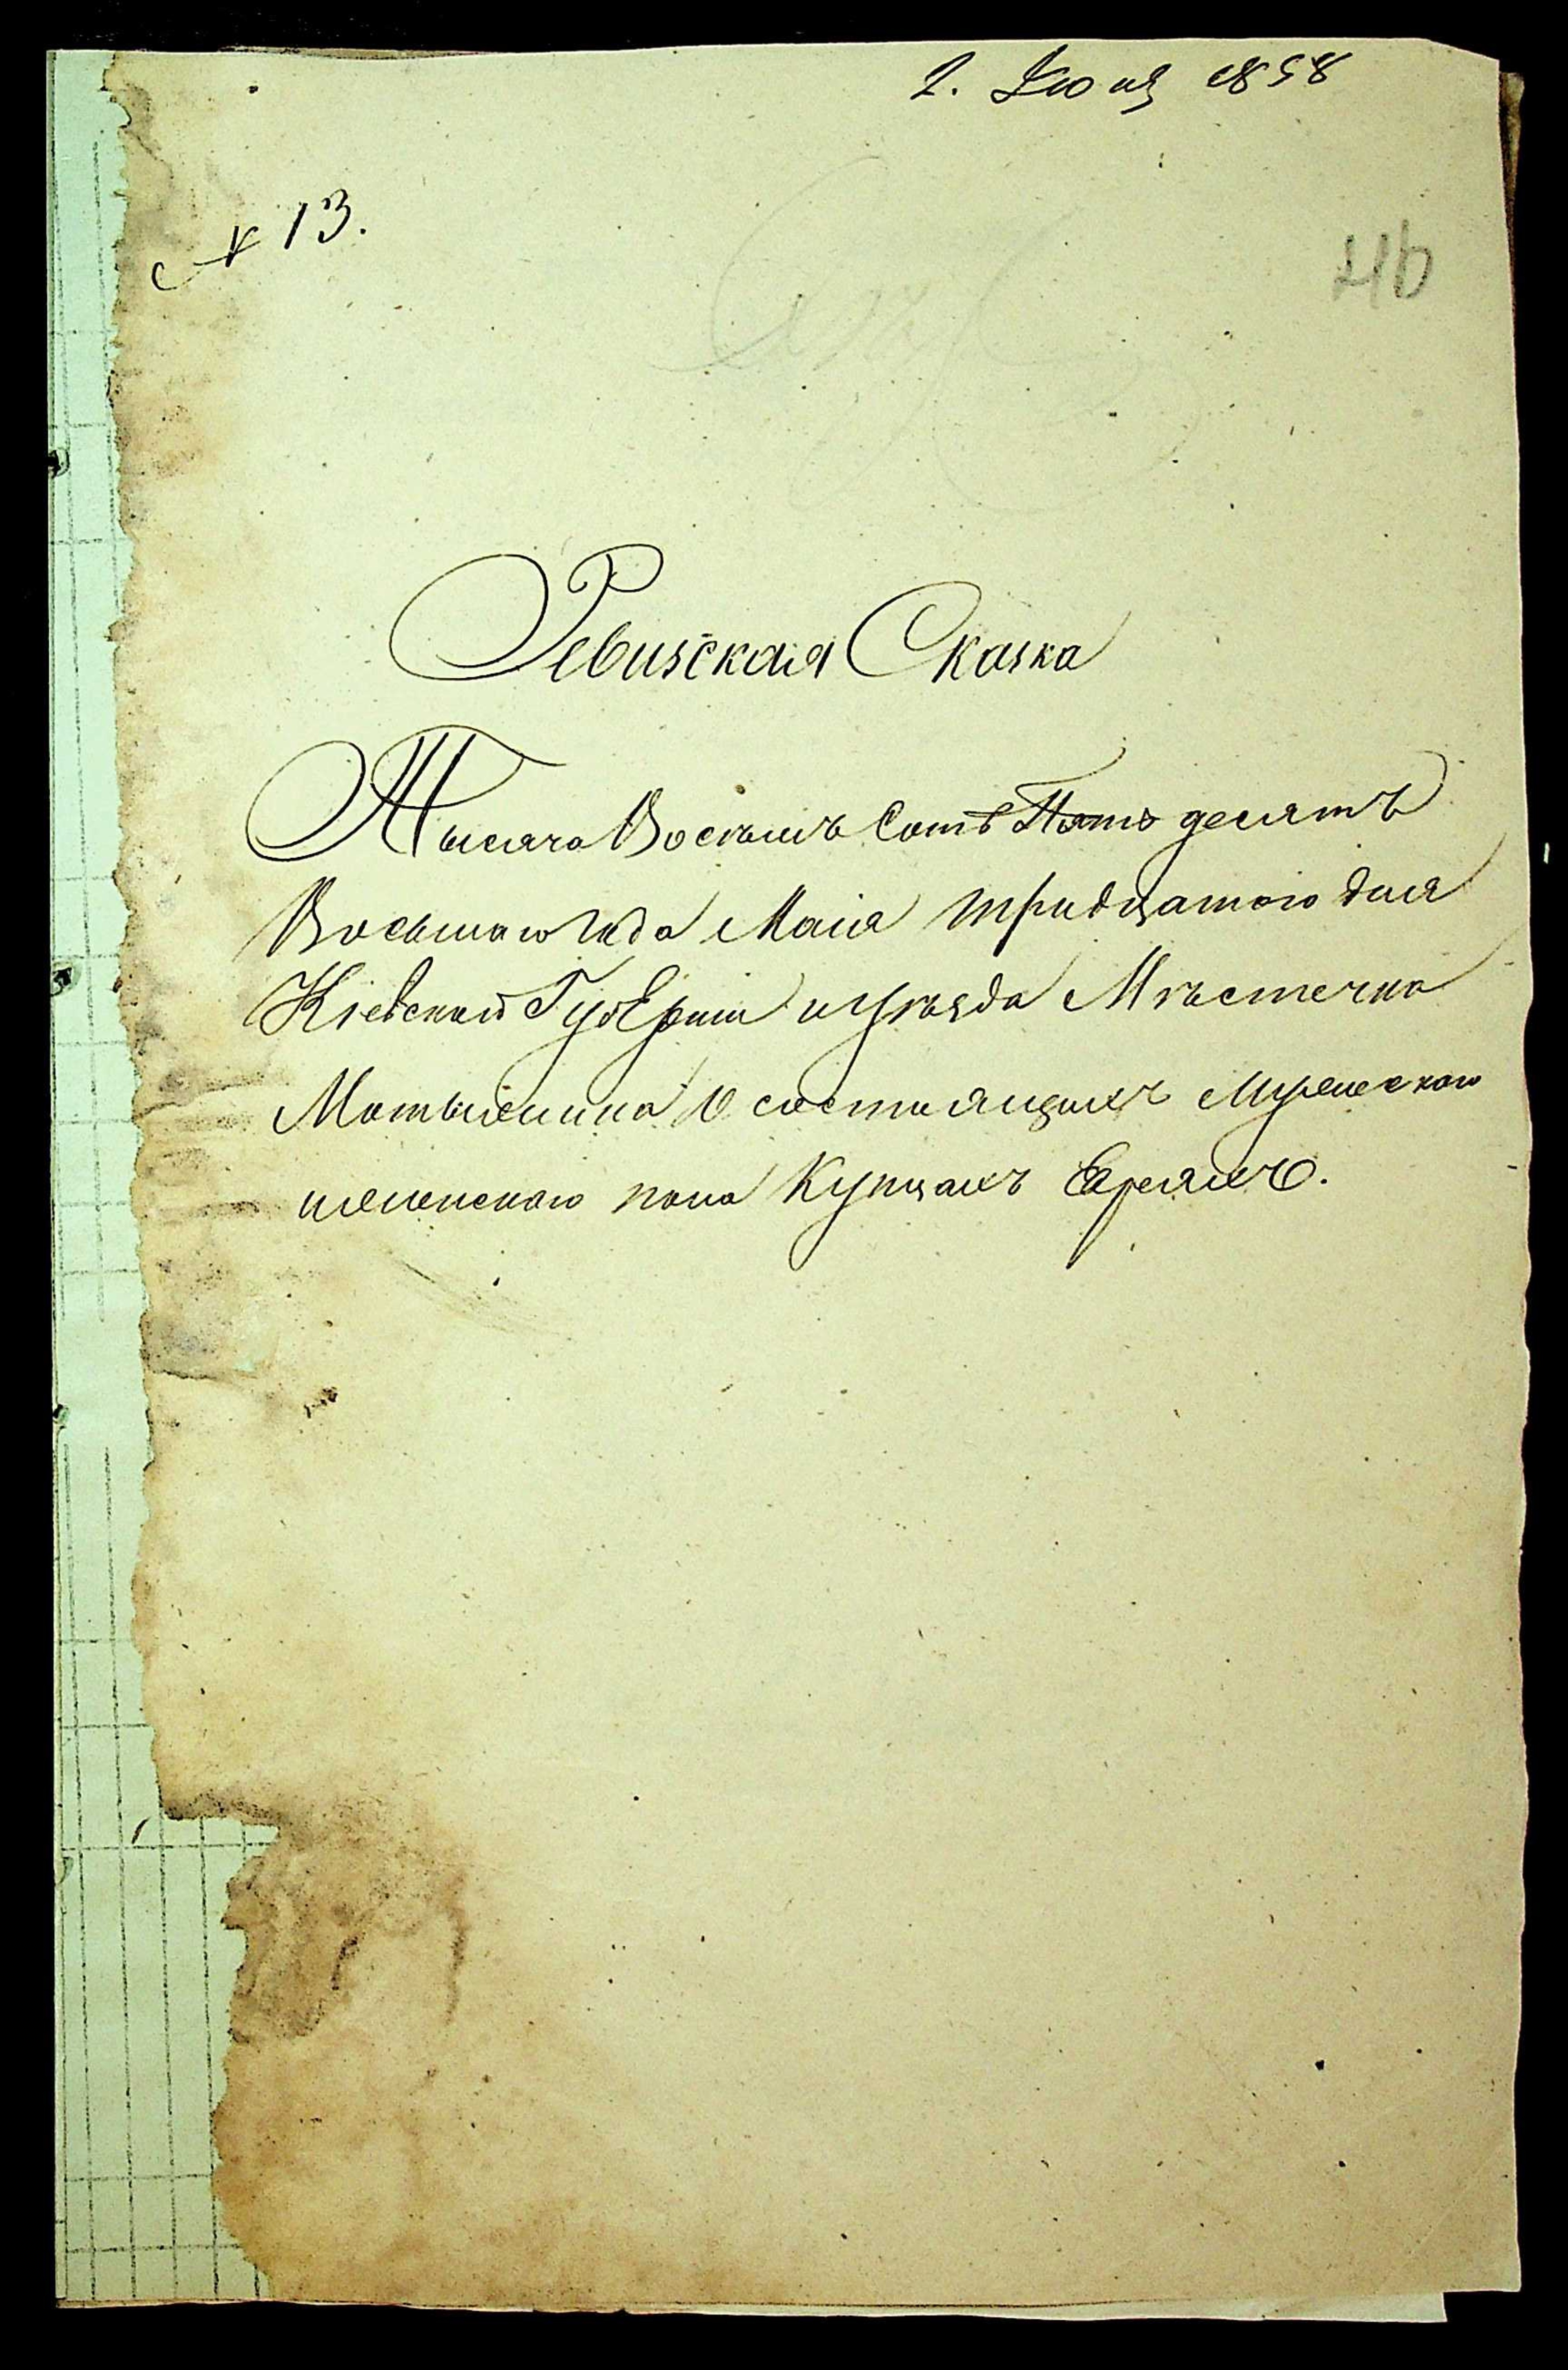 2. Июня 1858
№ 13.
46
Ревизская Сказка
Тысяча Восемь Сотъ Пять десятъ
Восьмаго года Маія тридцатого дня
Кіевской Губерніи и уѣзда Мѣстечка
Мотыжина О состоящихъ Мужеского
и женского пола Купцахъ Евреяхъ.